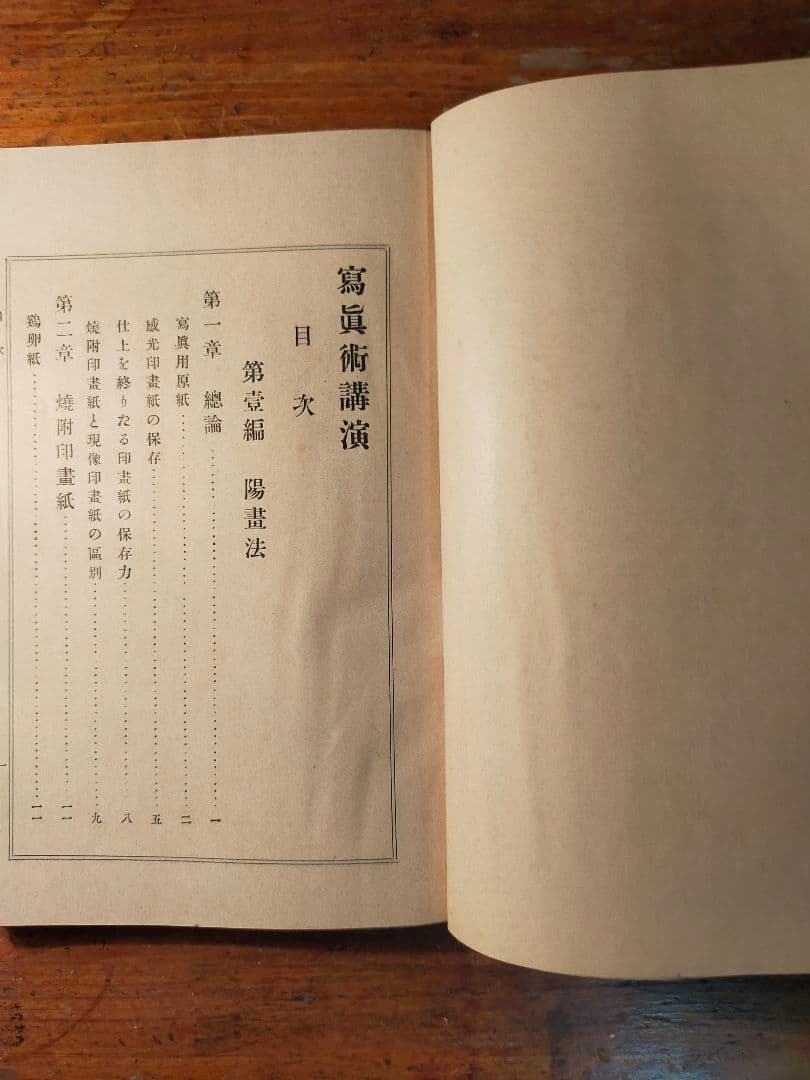 寫眞術講演
目次
第壹編 陽畫法
第一章 總論……………………一
寫眞用原紙……………………二
感光印畫紙の保存……………………五
仕上を終りたる印畫紙の保存力……………………八
燒附印畫紙と現像印畫紙の區別……………………九
第二章 燒附印畫紙……………………一一
鷄卵紙……………………一一
一